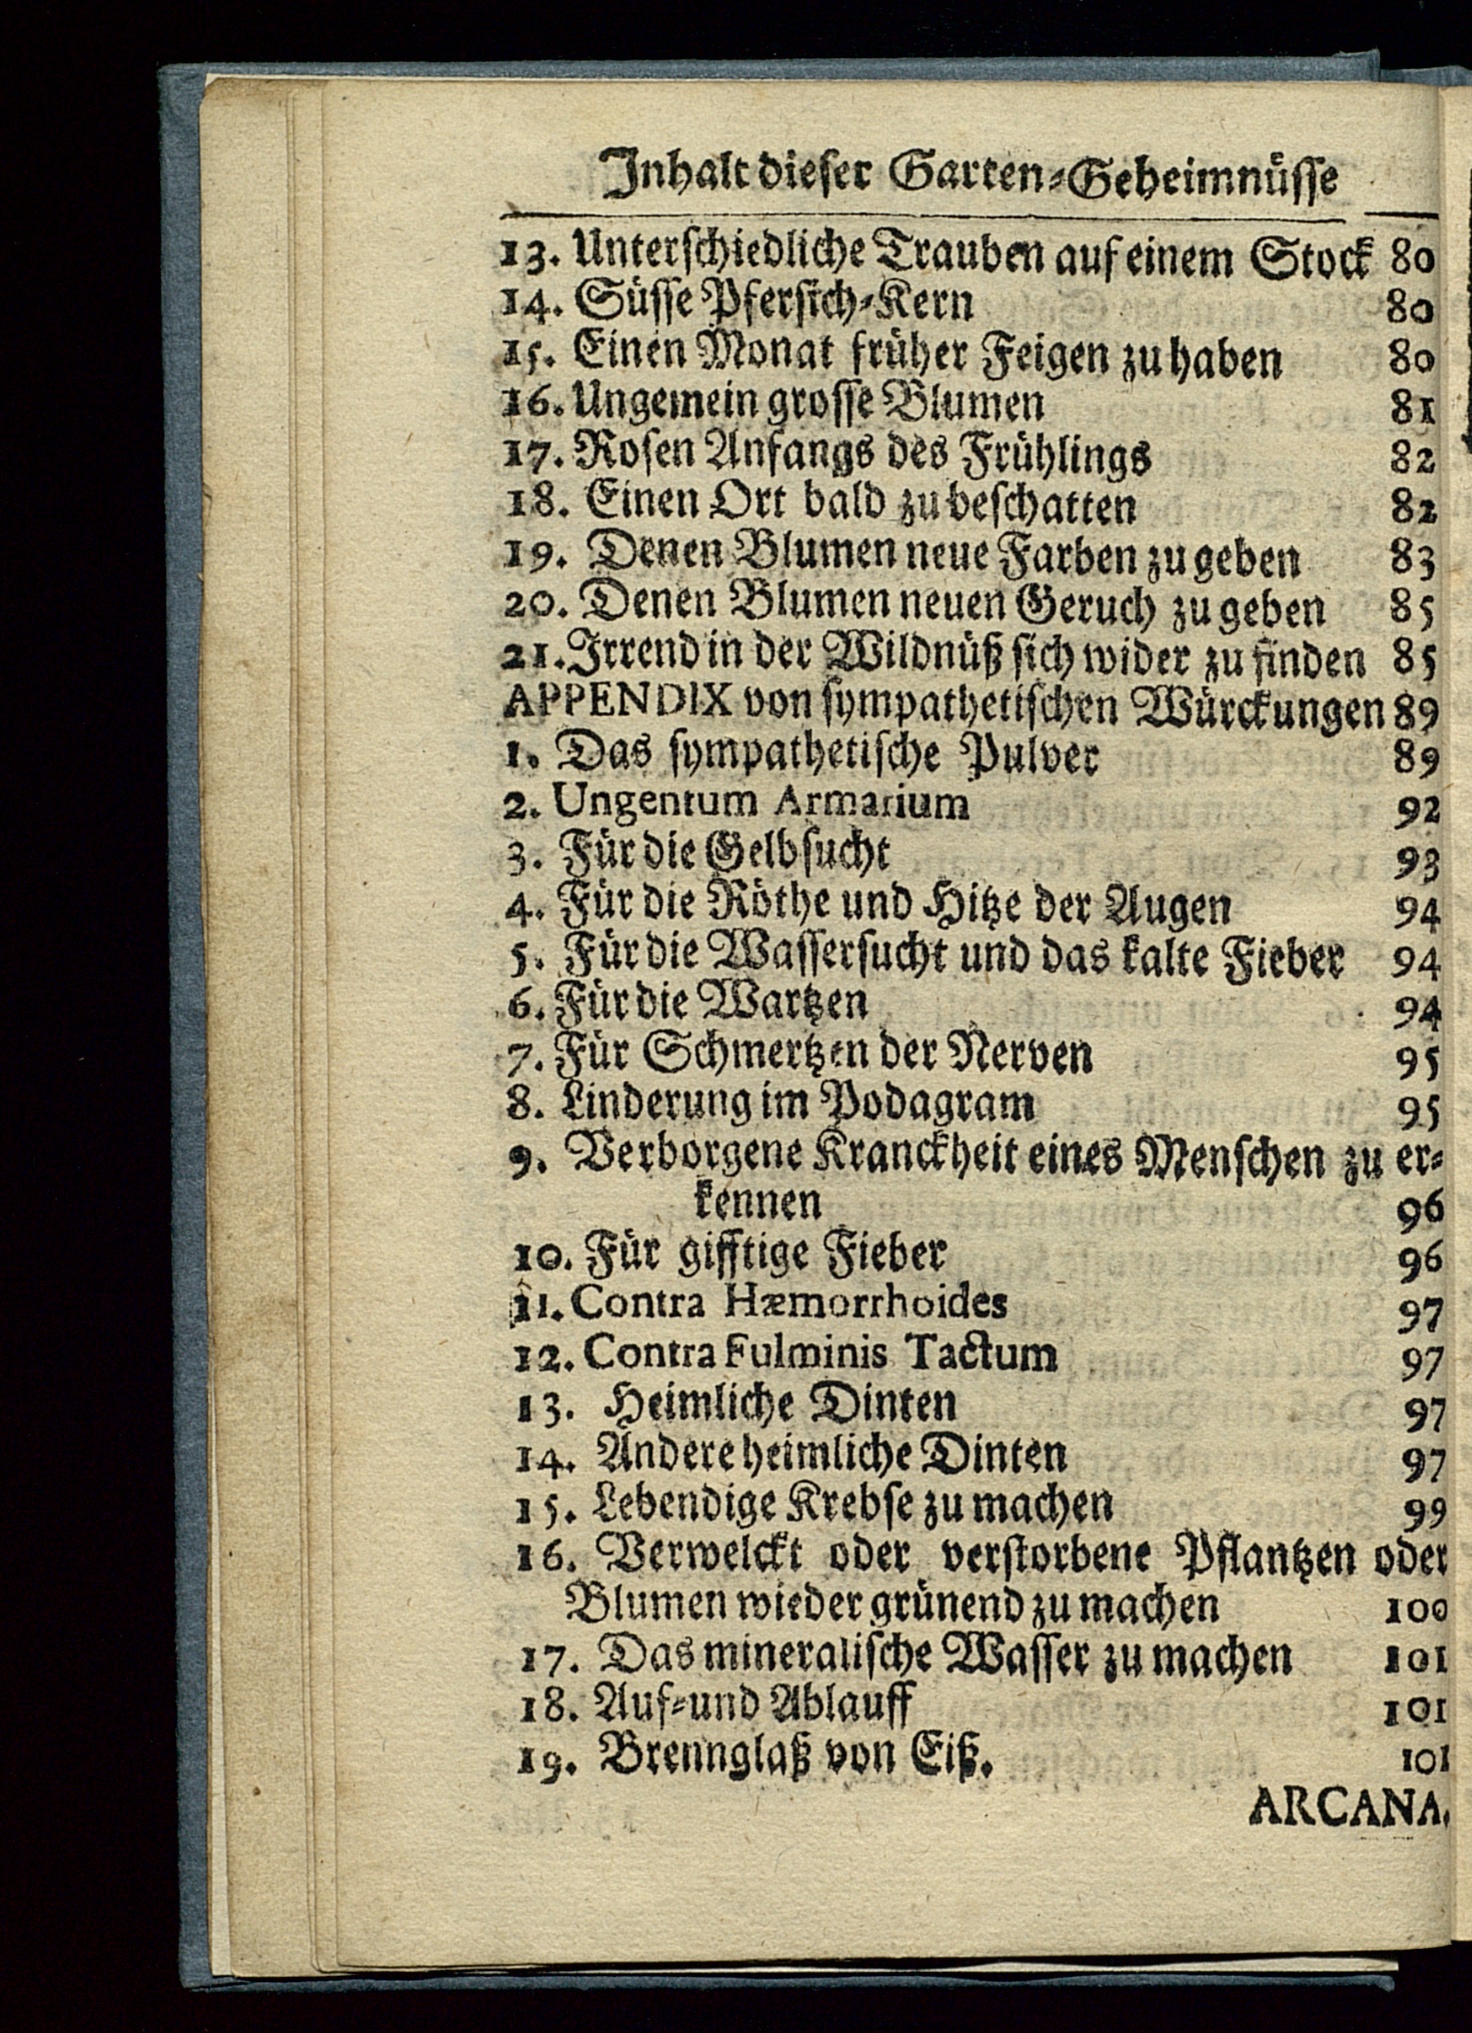 Inhalt dieser Garten-Geheimnüsse
13. Unterschiedliche Trauben auf einem Stock 80
14. Süsse Pfersich-Kern 80
15. Einen Monat früher Feigen zu haben 80
16. Ungemein grosse Blumen 81
17. Rosen Anfangs des Frühlings 82
18. Einen Ort bald zu beschatten 82
19. Denen Blumen neue Farben zu geben 83
20. Denen Blumen neuen Geruch zu geben 85
21. Irrend in der Wildnüß sich wider zu finden 85
APPENDIX von sympathetischen Würckungen 89
1. Das sympathetische Pulver 89
2. Ungentum Armarium 92
3. Für die Gelbsucht 93
4. Für die Röthe und Hitze der Augen 94
5. Für die Wassersucht und das kalte Fieber 94
6. Für die Wartzen 94
7. Für Schmertzen der Nerven 95
8. Linderung im Podagram 95
9. Verborgene Kranckheit eines Menschen zu er-
kennen 96
10. Für gifftige Fieber 96
11. Contra Hæmorrhoides 97
12. Contra Fulminis Tactum 97
13. Heimliche Dinten 97
14. Andere heimliche Dinten 97
15. Lebendige Krebse zu machen 99
16. Verwelckt oder verstorbene Pflantzen oder
Blumen wieder grünend zu machen 100
17. Das mineralische Wasser zu machen 101
18. Auf- und Ablauff 101
19. Brennglaß von Eiß. 101
ARCANA.